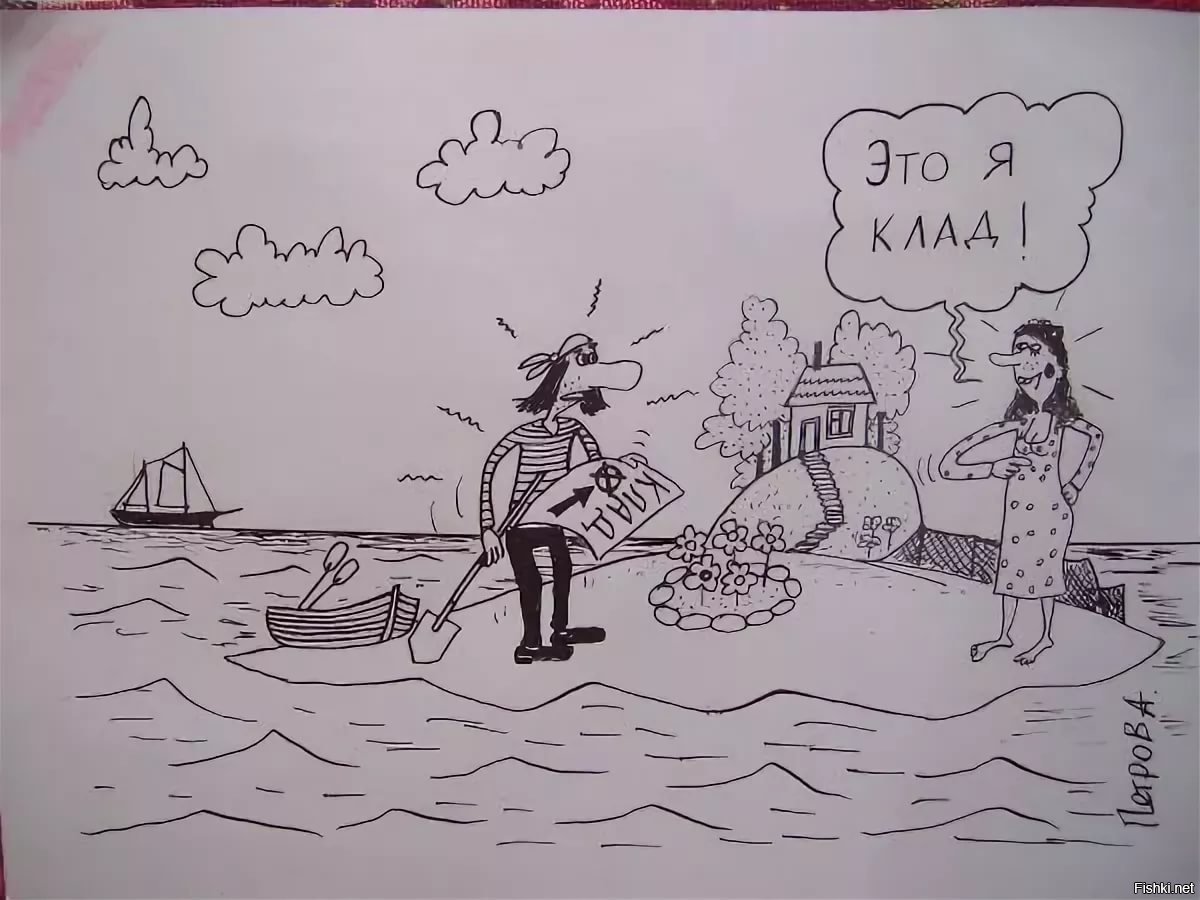 Это я
клад!
КЛАД
Петров А.
Fishki.net